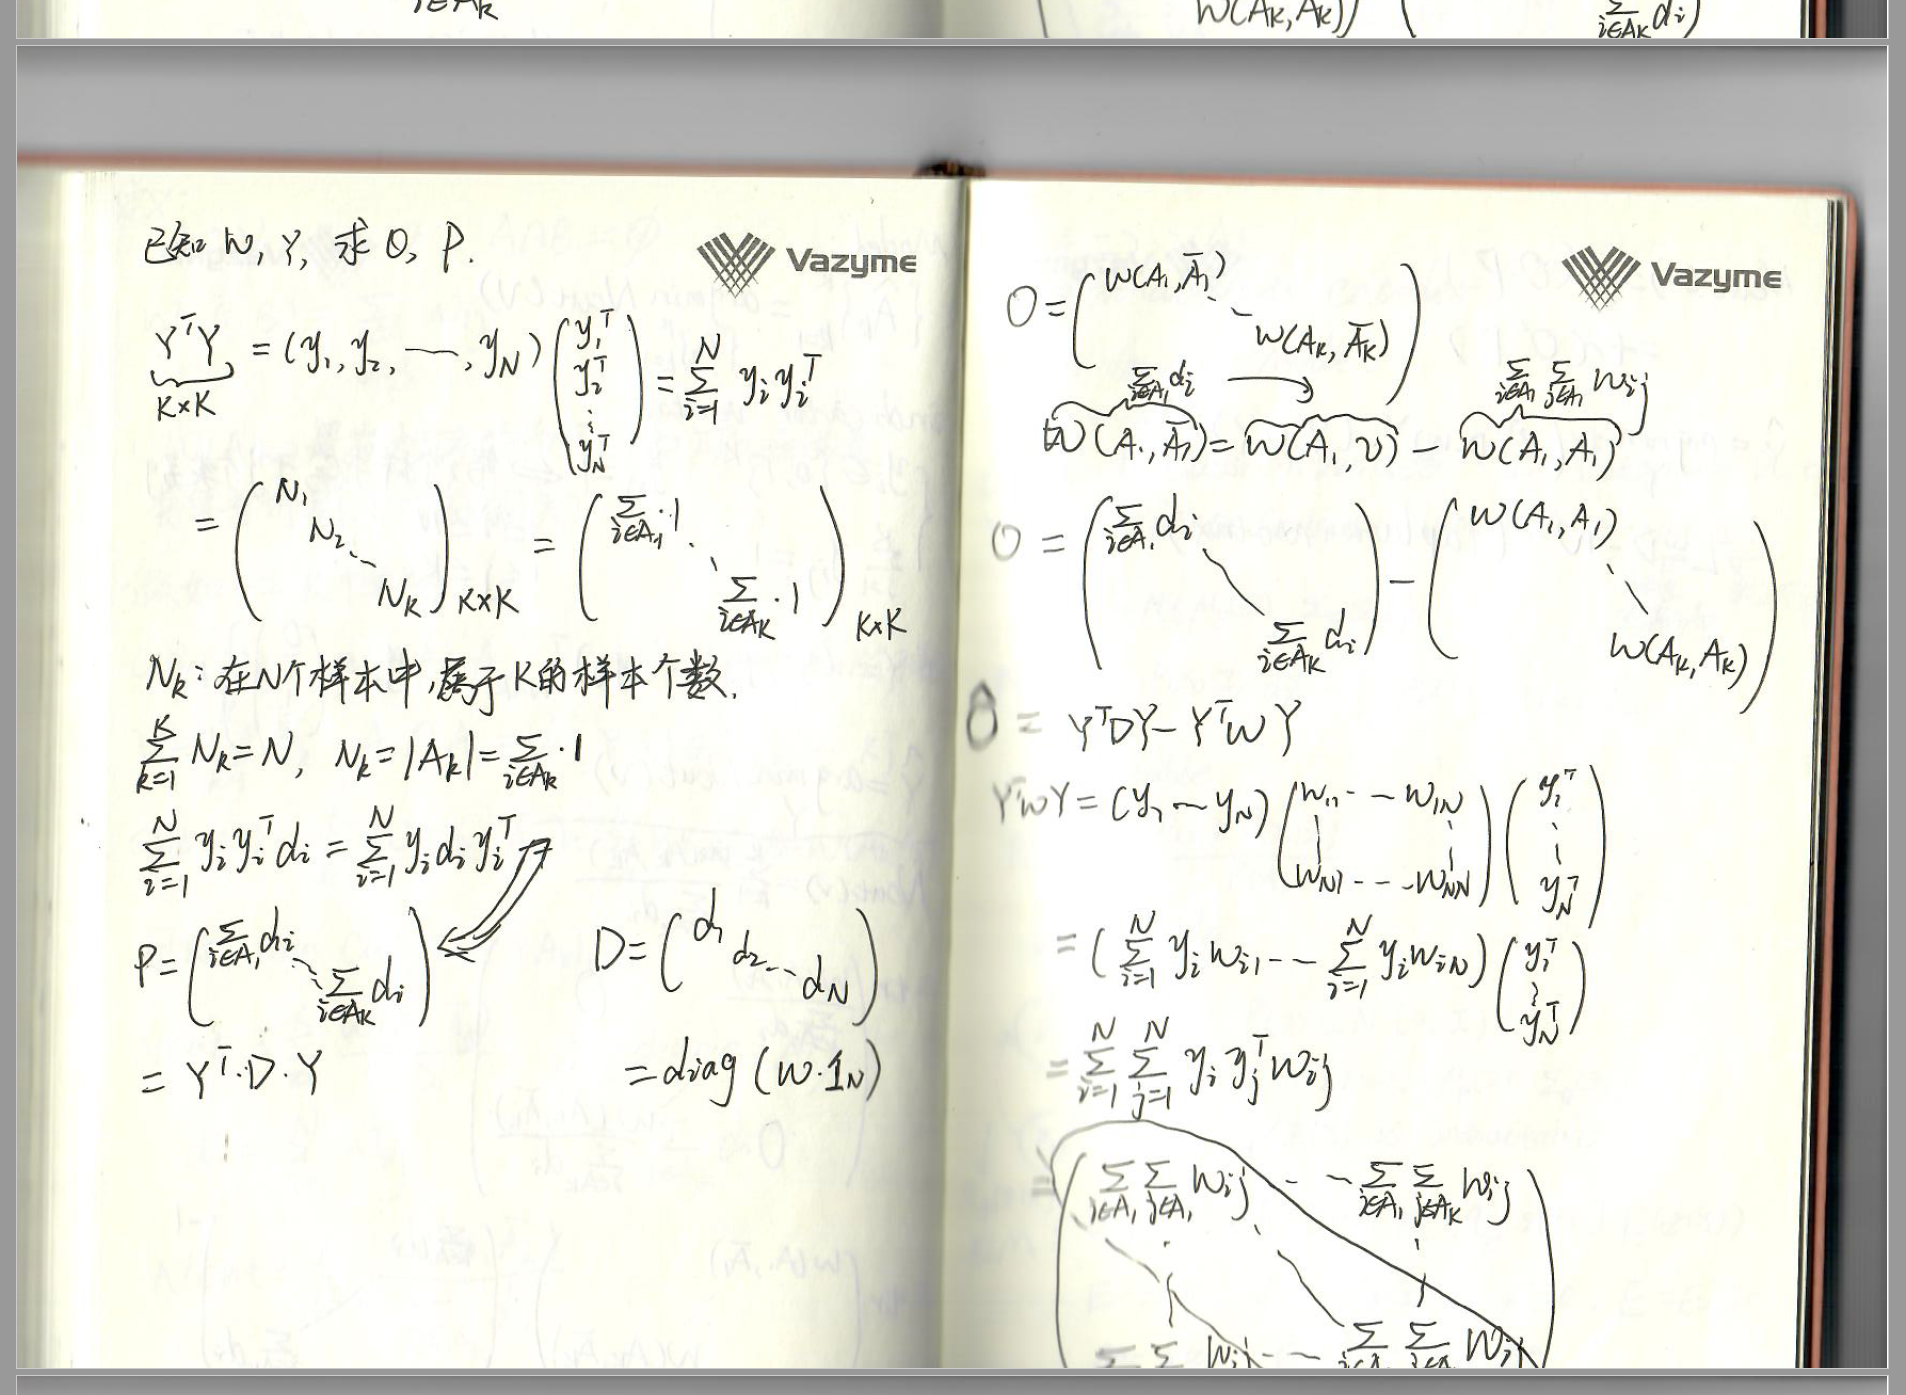 i∈A_k
W(A_k, A_k)) ( Σ_{i∈A_k} d_i)
已知 W, Y, 求 O, P.
Vazyme
Y^T Y = (y_1, y_2, ---, y_N) (y_1^T y_2^T ⋮ y_N^T) = Σ_{i=1}^N y_i y_i^T
K×K
= (N_1 N_2 ⋱ N_k)_{K×K} = (Σ_{i∈A_1}·1 ⋱ Σ_{i∈A_k}·1)_{K×K}
N_k: 在N个样本中,属于K的样本个数.
Σ_{k=1}^K N_k = N, N_k = |A_k| = Σ_{i∈A_k}·1
Σ_{i=1}^N y_i y_i^T d_i = Σ_{i=1}^N y_i d_i y_i^T
P = (Σ_{i∈A_1} d_i ⋱ Σ_{i∈A_k} d_i) D = (d_1 d_2 ⋱ d_N)
= Y^T·D·Y = diag (W·1_N)
Vazyme
O = (W(A_1, Ā_1) ⋱ W(A_k, Ā_k))
Σ_{i∈A_1} d_i → Σ_{i∈A_1} Σ_{j∈A_1} W_{ij}
W(A_1, Ā_1) = W(A_1, V) - W(A_1, A_1)
O = (Σ_{i∈A_1} d_i ⋱ Σ_{i∈A_k} d_i) - (W(A_1, A_1) ⋱ W(A_k, A_k))
Ô = Y^T D Y - Y^T W Y
Y^T W Y = (y_1 --- y_N) (W_{11} --- W_{1N} ⋮ ⋮ W_{N1} --- W_{NN}) (y_1^T ⋮ y_N^T)
= (Σ_{i=1}^N y_i W_{i1} --- Σ_{i=1}^N y_i W_{iN}) (y_1^T ⋮ y_N^T)
= Σ_{i=1}^N Σ_{j=1}^N y_i y_j^T W_{ij}
= (Σ_{i∈A_1} Σ_{j∈A_1} W_{ij} --- Σ_{i∈A_1} Σ_{j∈A_k} W_{ij}
Σ Σ W_{ij} --- Σ_{i∈A} Σ_{j∈A} W_{ij})